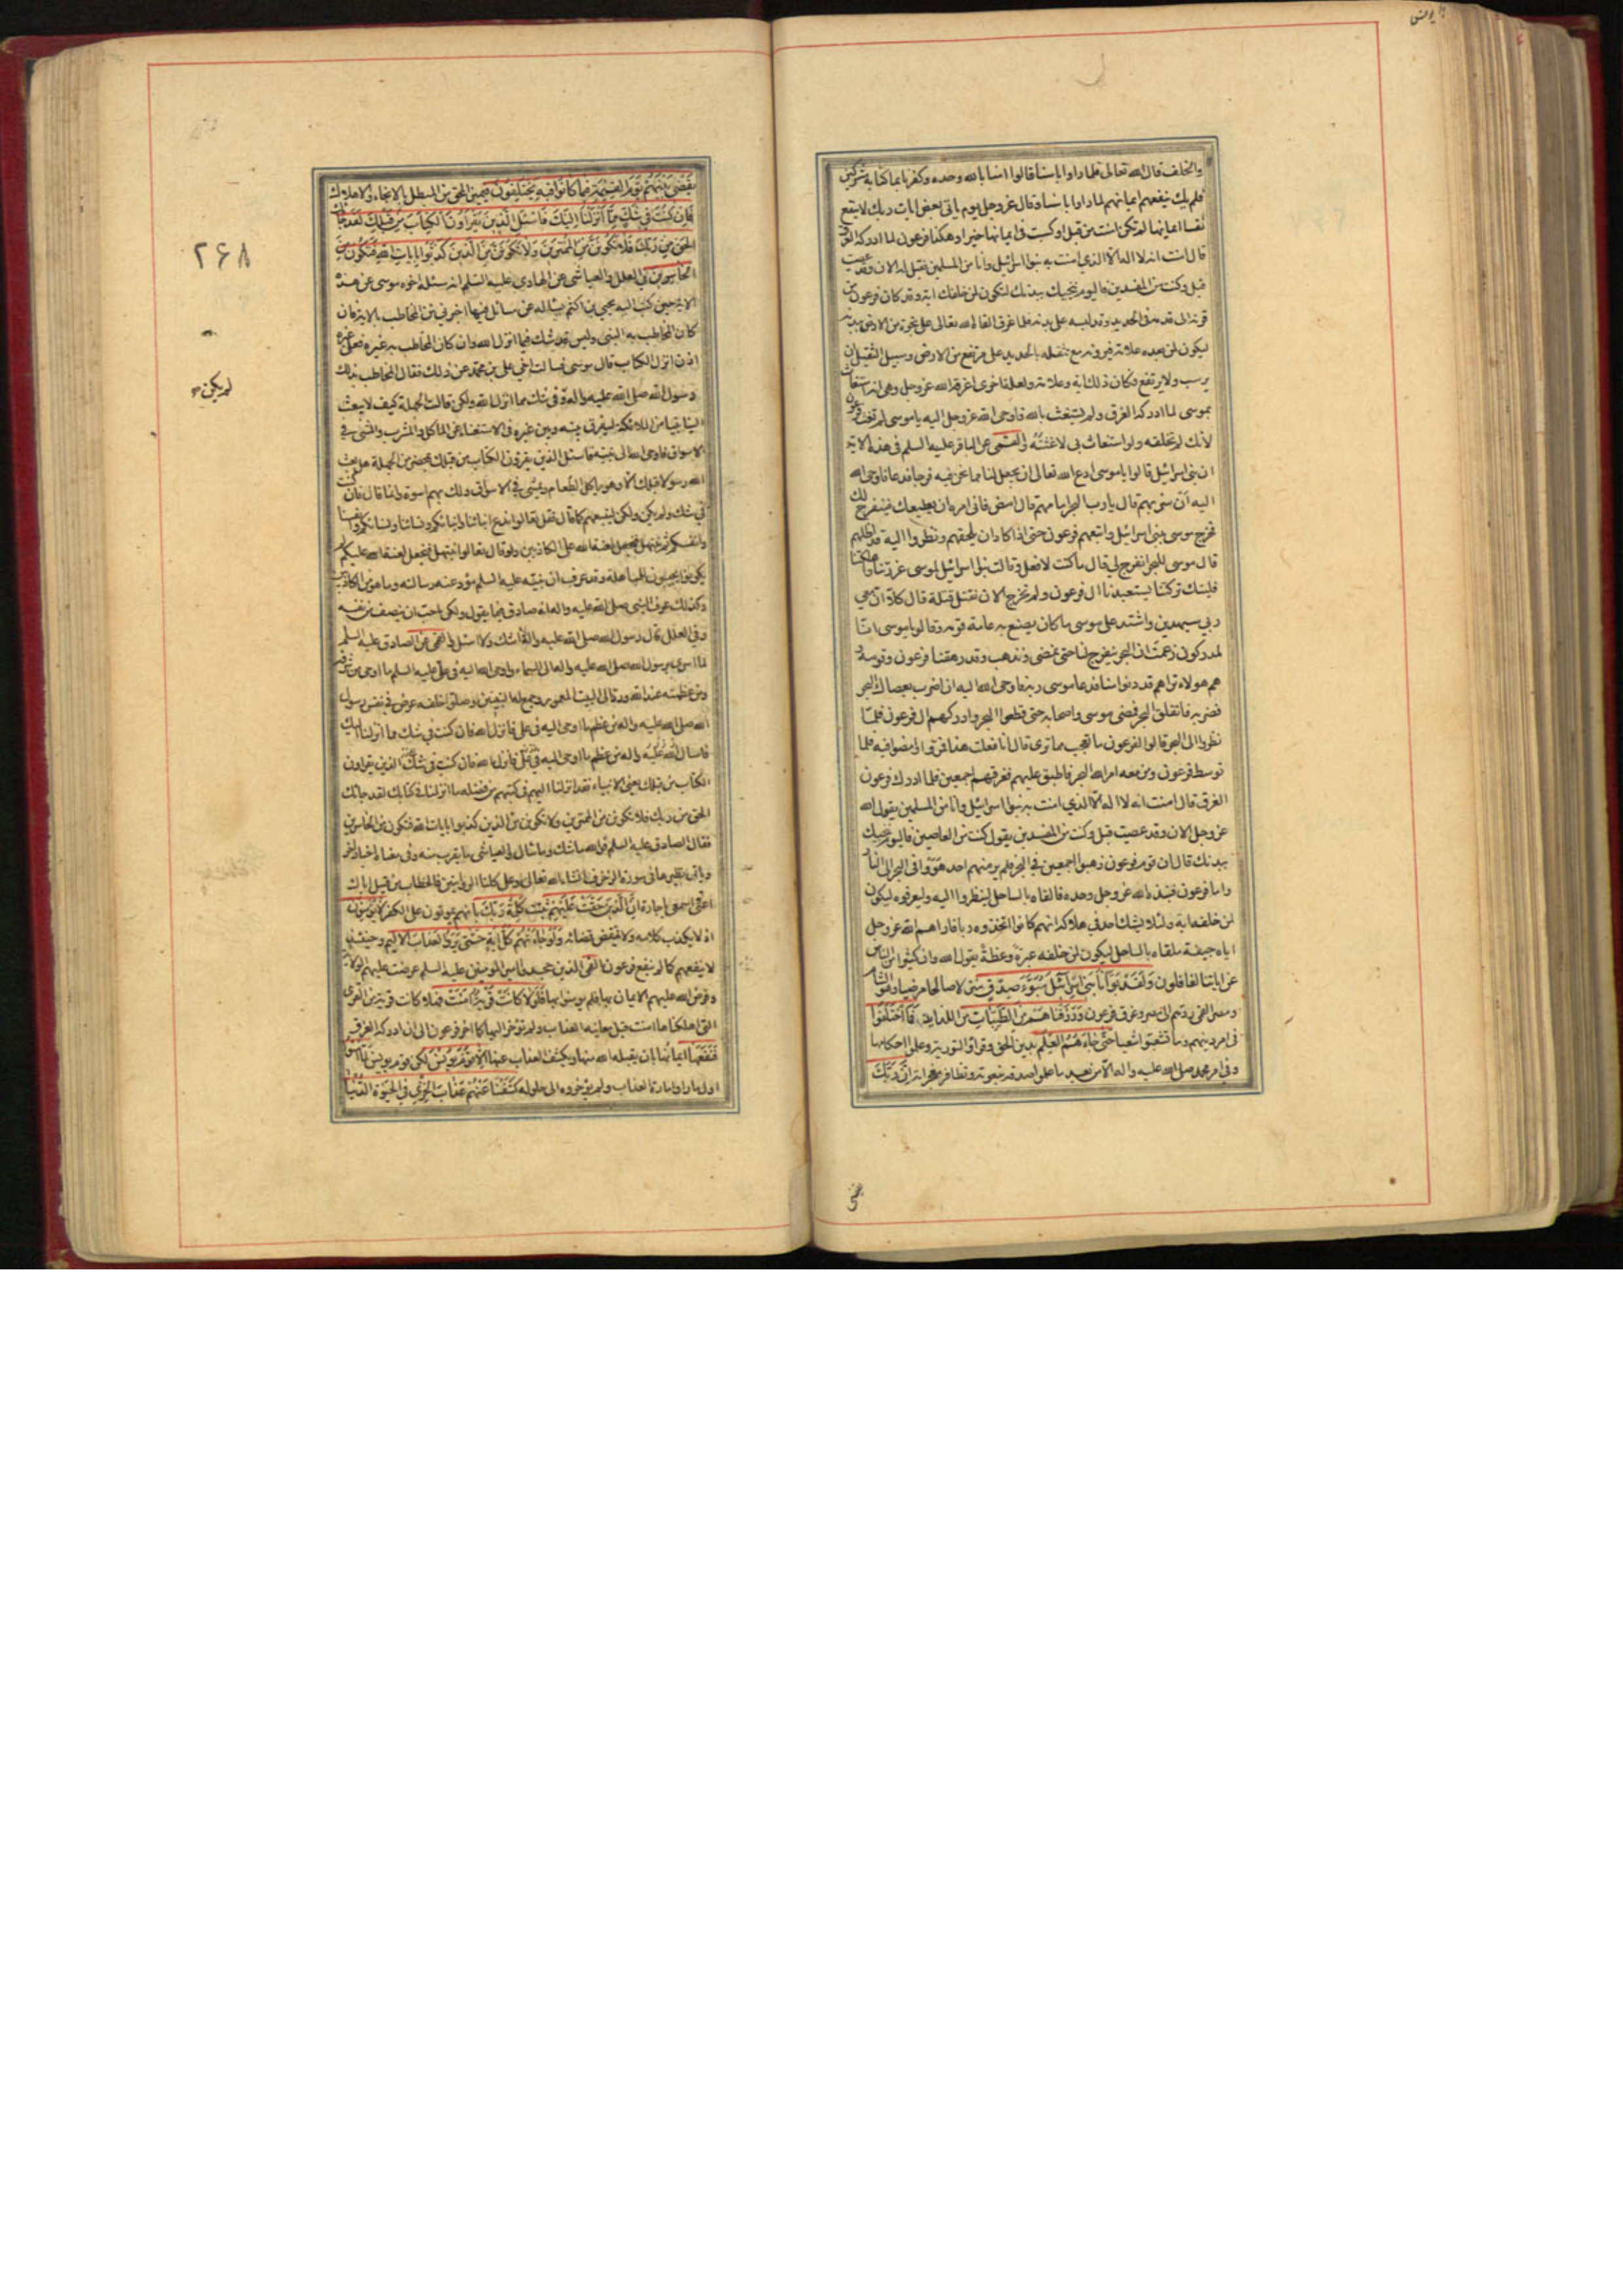 يونس
والخلف قال الله تعالى فلما راوا باسنا قالوا امنا بالله وحده وكفرنا بما كنا به مشركين
فلم يك ينفعهم ايمانهم لما راوا باسنا وقال عز وجل يوم ياتى بعض ايات ربك لا ينفع
نفسا ايمانها لم تكن امنت من قبل او كسبت فى ايمانها خيرا وهكذا فرعون لما ادركه الغرق
قال امنت انه لا اله الا الذي امنت به بنوا اسرائيل وانا من المسلمين فقيل له الان وقد عصيت
قبل وكنت من المفسدين فاليوم ننجيك ببدنك لتكون لمن خلفك اية وقد كان فرعون من
قرنه الى قدمه فى الحديد وقد لبسه على بدنه فلما غرق القاه الله تعالى على نجوة من الارض ببدنه
ليكون لمن بعده علامة فيرونه مع تثقله بالحديد على مرتفع من الارض وسبيل الثقيل ان
يرسب ولا يرتفع فكان ذلك اية وعلامة ولعلة اخرى اغرقه الله عز وجل وهى انه استغاث
بموسى لما ادركه الغرق ولم يستغث بالله فاوحى الله عز وجل اليه يا موسى لم تغث فرعون
لانك لم تخلقه ولو استغاث بى لاغثته والقمى عن الباقر عليه السلم فى هذه الاية
ان بنى اسرائيل قالوا يا موسى ادع الله تعالى ان يجعل لنا مما نحن فيه فرجا فدعا فاوحى الله
اليه ان سر بهم قال يا رب البحر امامهم قال امض فانى امره ان يطيعك فينفرج لك
فخرج موسى ببنى اسرائيل واتبعهم فرعون حتى اذا كاد ان يلحقهم ونظروا اليه قد اظلهم
قال موسى للبحر انفرج لي قال ما كنت لافعل وقالت بنوا اسرائيل لموسى غررتنا واهلكتنا
فليتك تركتنا يستعبدنا ال فرعون ولم نخرج الان نقتل قتلة قال كلا ان معي
ربي سيهدين واشتد على موسى ما كان يصنع به عامة قومه وقالوا يا موسى انا
لمدركون زعمت ان البحر ينفرج لنا حتى نمضى ونذهب وقد رهقنا فرعون وقومه و
هم هولاء تراهم قد دنوا منا فدعا موسى ربه فاوحى الله اليه ان اضرب بعصاك البحر
فضربه فانفلق البحر فمضى موسى واصحابه حتى قطعوا البحر وادركهم ال فرعون فلما
نظروا الى البحر قالوا لفرعون ما تعجب مما ترى قال انا فعلت هذا فمروا ومضوا فيه فلما
توسط فرعون ومن معه امر الله البحر فاطبق عليهم فغرقهم اجمعين فلما ادرك فرعون
الغرق قال امنت انه لا اله الا الذي امنت به بنوا اسرائيل وانا من المسلمين يقول الله
عز وجل الان وقد عصيت قبل وكنت من المفسدين يقول كنت من العاصين فاليوم ننجيك
ببدنك قال ان قوم فرعون ذهبوا اجمعين في البحر فلم ير منهم احد هووا فى البحر الى النار
واما فرعون فنبذه الله عز وجل وحده فالقاه بالساحل لينظروا اليه وليعرفوه ليكون
لمن خلفه اية ولئلا يشك احد في هلاكه انهم كانوا اتخذوه ربا فاراهم الله عز وجل
اياه جيفة ملقاه بالساحل ليكون لمن خلفه عبرة وعظة يقول الله وان كثيرا من الناس
عن اياتنا لغافلون وَلَقَدْ بَوَّأْنَا بَنِى اِسْرَآئِلَ مُبَوَّءَ صِدْقٍ منزلا صالحا مرضيا وهو الشام
ومصر القمى ردهم الى مصر وغرق فرعون وَرَزَقْنَاهُمْ مِنَ الطَّيِّبَاتِ من اللذايذ فَمَا اخْتَلَفُوا
فى امر دينهم وما تشعبوا شعبا حَتّى جَاءَهُمُ الْعِلْمُ بدين الحق وقراوا التورية وعلموا احكامها
وفى امر محمد صلى الله عليه واله الا من بعد ما علموا صدقه بنعوته وتظاهر معجزاته اِنَّ رَبَّكَ
يقضى
يَقْضِى بَيْنَهُمْ يَوْمَ الْقِيٰمَةِ فِيمَا كَانُوا فِيهِ يَخْتَلِفُونَ فيميز المحق من المبطل بالانجاء والاهلاك
فَاِنْ كُنْتَ فِى شَكٍّ مِمَّا اَنْزَلْنَا اِلَيْكَ فَاسْئَلِ الَّذِينَ يَقْرَاوُنَ الْكِتَابَ مِنْ قَبْلِكَ لَقَدْ جَاءَكَ
الْحَقُّ مِنْ رَبِّكَ فَلَا تَكُونَنَّ مِنَ الْمُمْتَرِينَ وَلَا تَكُونَنَّ مِنَ الَّذِينَ كَذَّبُوا بِايَاتِ اللهِ فَتَكُونَ مِنَ
الْخَاسِرِينَ في العلل والعياشى عن الهادى عليه السلم انه سئله اخوه موسى عن هذه
الاية حين كتب اليه يحيى بن اكثم يساله عن مسائل فيها اخبرنى من المخاطب بالاية فان
كان المخاطب به النبى وليس قد شك فيما انزل الله وان كان المخاطب به غيره فعلى غيره
اذن انزل الكتاب قال موسى فسالت اخي على بن محمد عن ذلك فقال المخاطب بذلك
رسول الله صلى الله عليه واله ولم فى شك مما انزل الله ولكن قالت الجهلة كيف لا يبعث
الينا نبيا من الملائكة ليفرق بينه وبين غيره فى الاستغناء عن الماكل والمشرب والمشى في
الاسواق فاوحى الله الى نبيه فاسئل الذين يقرؤن الكتاب من قبلك بمحضر من الجهلة هل بعث
الله رسولا قبلك الا وهو ياكل الطعام ويمشى في الاسواق ولك بهم اسوة وانما قال فان كنت
في شك ولم يكن ولكن ليتبعهم كما قال فقل تعالوا ندع ابنائنا وابنائكم ونسائنا ونسائكم وانفسنا
وانفسكم ثم نبتهل فنجعل لعنة الله على الكاذبين ولو قال تعالوا نبتهل فنجعل لعنة الله عليكم لم
يكونوا يجيبون للمباهلة وقد عرف ان نبيه عليه السلم مؤد عنه رسالته وما هو من الكاذبين
وكذلك عرف النبى صلى الله عليه واله انه صادق فيما يقول ولكن احب ان ينصف من نفسه
وفى العلل قال رسول الله صلى الله عليه واله لا اشك ولا اسئل والقمى عن الصادق عليه السلم
لما اسرى برسول الله صلى الله عليه واله الى السماء واوحى الله اليه فى على عليه السلم ما اوحى من شرفه
ومن عظمته عند الله ورد الى البيت المعمور وجمع له النبيين وصلوا خلفه عرض في نفس رسول
الله صلى الله عليه واله من عظم ما اوحى اليه فى على فانزل الله فان كنت في شك مما انزلنا اليك
الكتاب من قبلك يعنى الانبياء فقد انزلنا اليهم فى كتبهم من فضله ما انزلنا في كتابك لقد جائك
الحق من ربك فلا تكونن من الممترين ولا تكونن من الذين كذبوا بايات الله فتكون من الخاسرين
فقال الصادق عليه السلم فوالله ما شك وما سال والعياشى ما يقرب منه وفى معناه اخبار اخر
اعنى واسمعى يا جارة اِنَّ الَّذِينَ حَقَّتْ عَلَيْهِمْ ثبتت كَلِمَةُ رَبِّكَ بانهم يموتون على الكفر لَا يُؤْمِنُونَ
اذ لا يكذب كلامه ولا ينتقض قضائه وَلَوْ جَاءَتْهُمْ كُلُّ ايَةٍ حَتّى يَرَوُا الْعَذَابَ الْاَلِيمَ وحينئذ
لا ينفعهم كما لم ينفع فرعون القمى الذين جحدوا امير المومنين عليه السلم عرضت عليهم الولاية
وفرض الله عليهم الايمان بها فلم يومنوا بها فَلَوْلَا كَانَتْ قَرْيَةٌ امَنَتْ فهلا كانت قرية من القرى
التى اهلكناها امنت قبل معاينة العذاب ولم تؤخر اليها كما اخر فرعون الى ان ادركه الغرق
فَنَفَعَهَا اِيمَانُهَا بان يقبله الله منها ويكشف العذاب عنها اِلَّا قَوْمَ يُونُسَ لكن قوم يونس لَمَّا امَنُوا
اول ما راوا امارة العذاب ولم يؤخروه الى حلوله كَشَفْنَا عَنْهُمْ عَذَابَ الْخِزْيِ فِي الْحَيٰوةِ الدُّنْيَا
٢۶٨
لم يكن